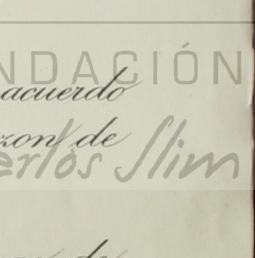 NDACIÓN
acuerdo
zon de
erlos Slim
de